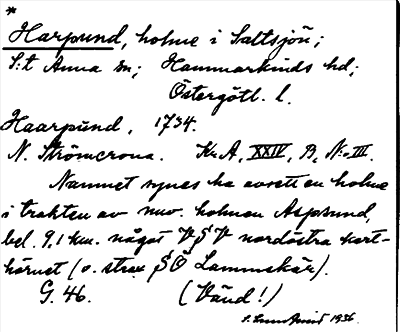 *
Harpund, holme i Saltsjön;
S:t Anna sn; Hammarkinds hd;
Östergötl. l.
Haarpund, 1734.
N. Strömcrona. Kr A, XXIV, B, N:o III.
Namnet synes ha avsett en holme
i trakten av nuv. holmen Aspsund,
bel. 9,1 km. något V § V nordöstra kart-
hörnet (o. strax SÖ Lammskär).
G. 46. (Vänd!)
1956.